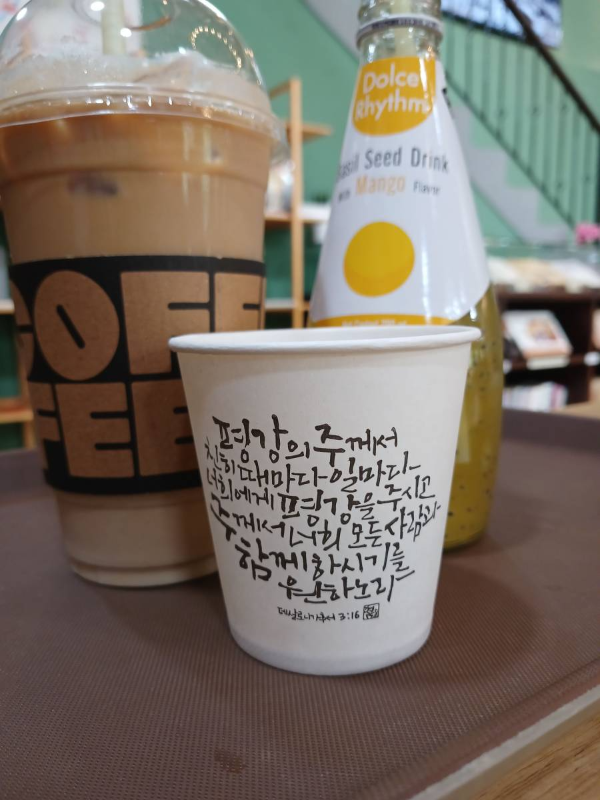 COFFEE
Dolce
Rhythm
Basil Seed Drink
With Mango Flavor
평강의 주께서
친히 때마다 일마다
너희에게 평강을 주시고
주께서 너희 모든 사람과
함께 하시기를
우원하노라
데살로니가후서 3:16